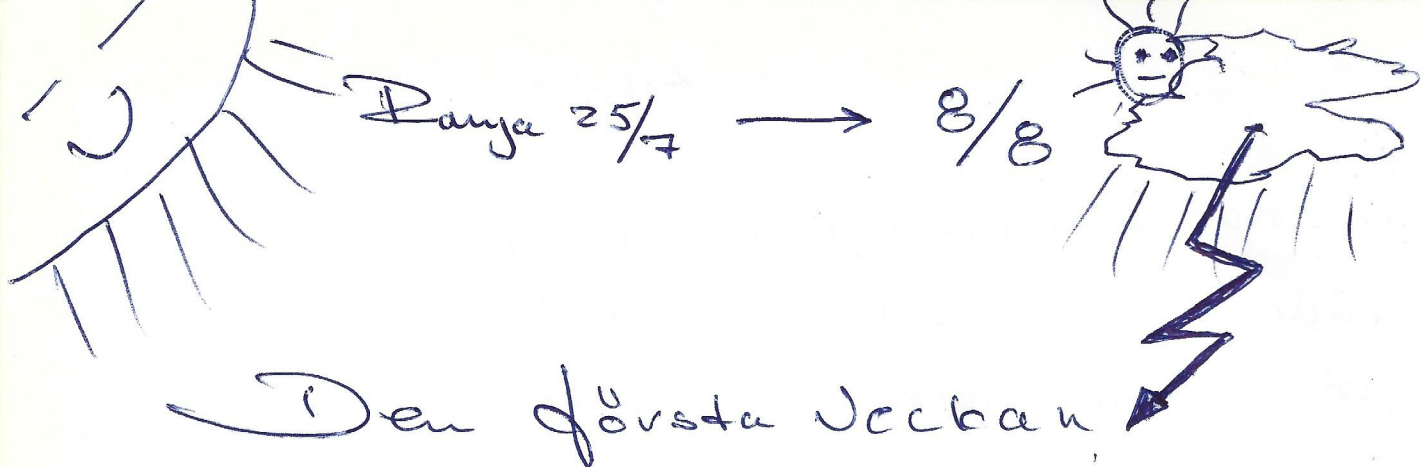 Ranja 25/7 → 8/8
Den första veckan